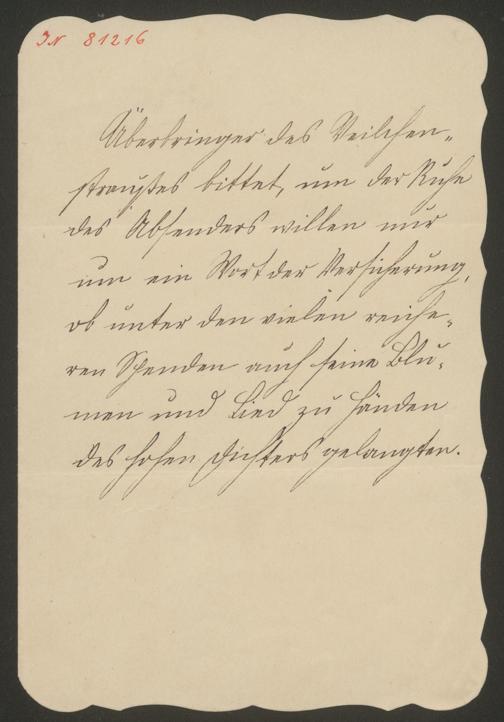 JN 81216
Überbringer des Veilchen-
straußes bittet, um der Ruhe
des Absenders willen nur
um ein Wort der Versicherung,
ob unter den vielen reiche-
ren Spenden auch seine Blu-
men und Lied zu Händen
des hohen Dichters gelangten.